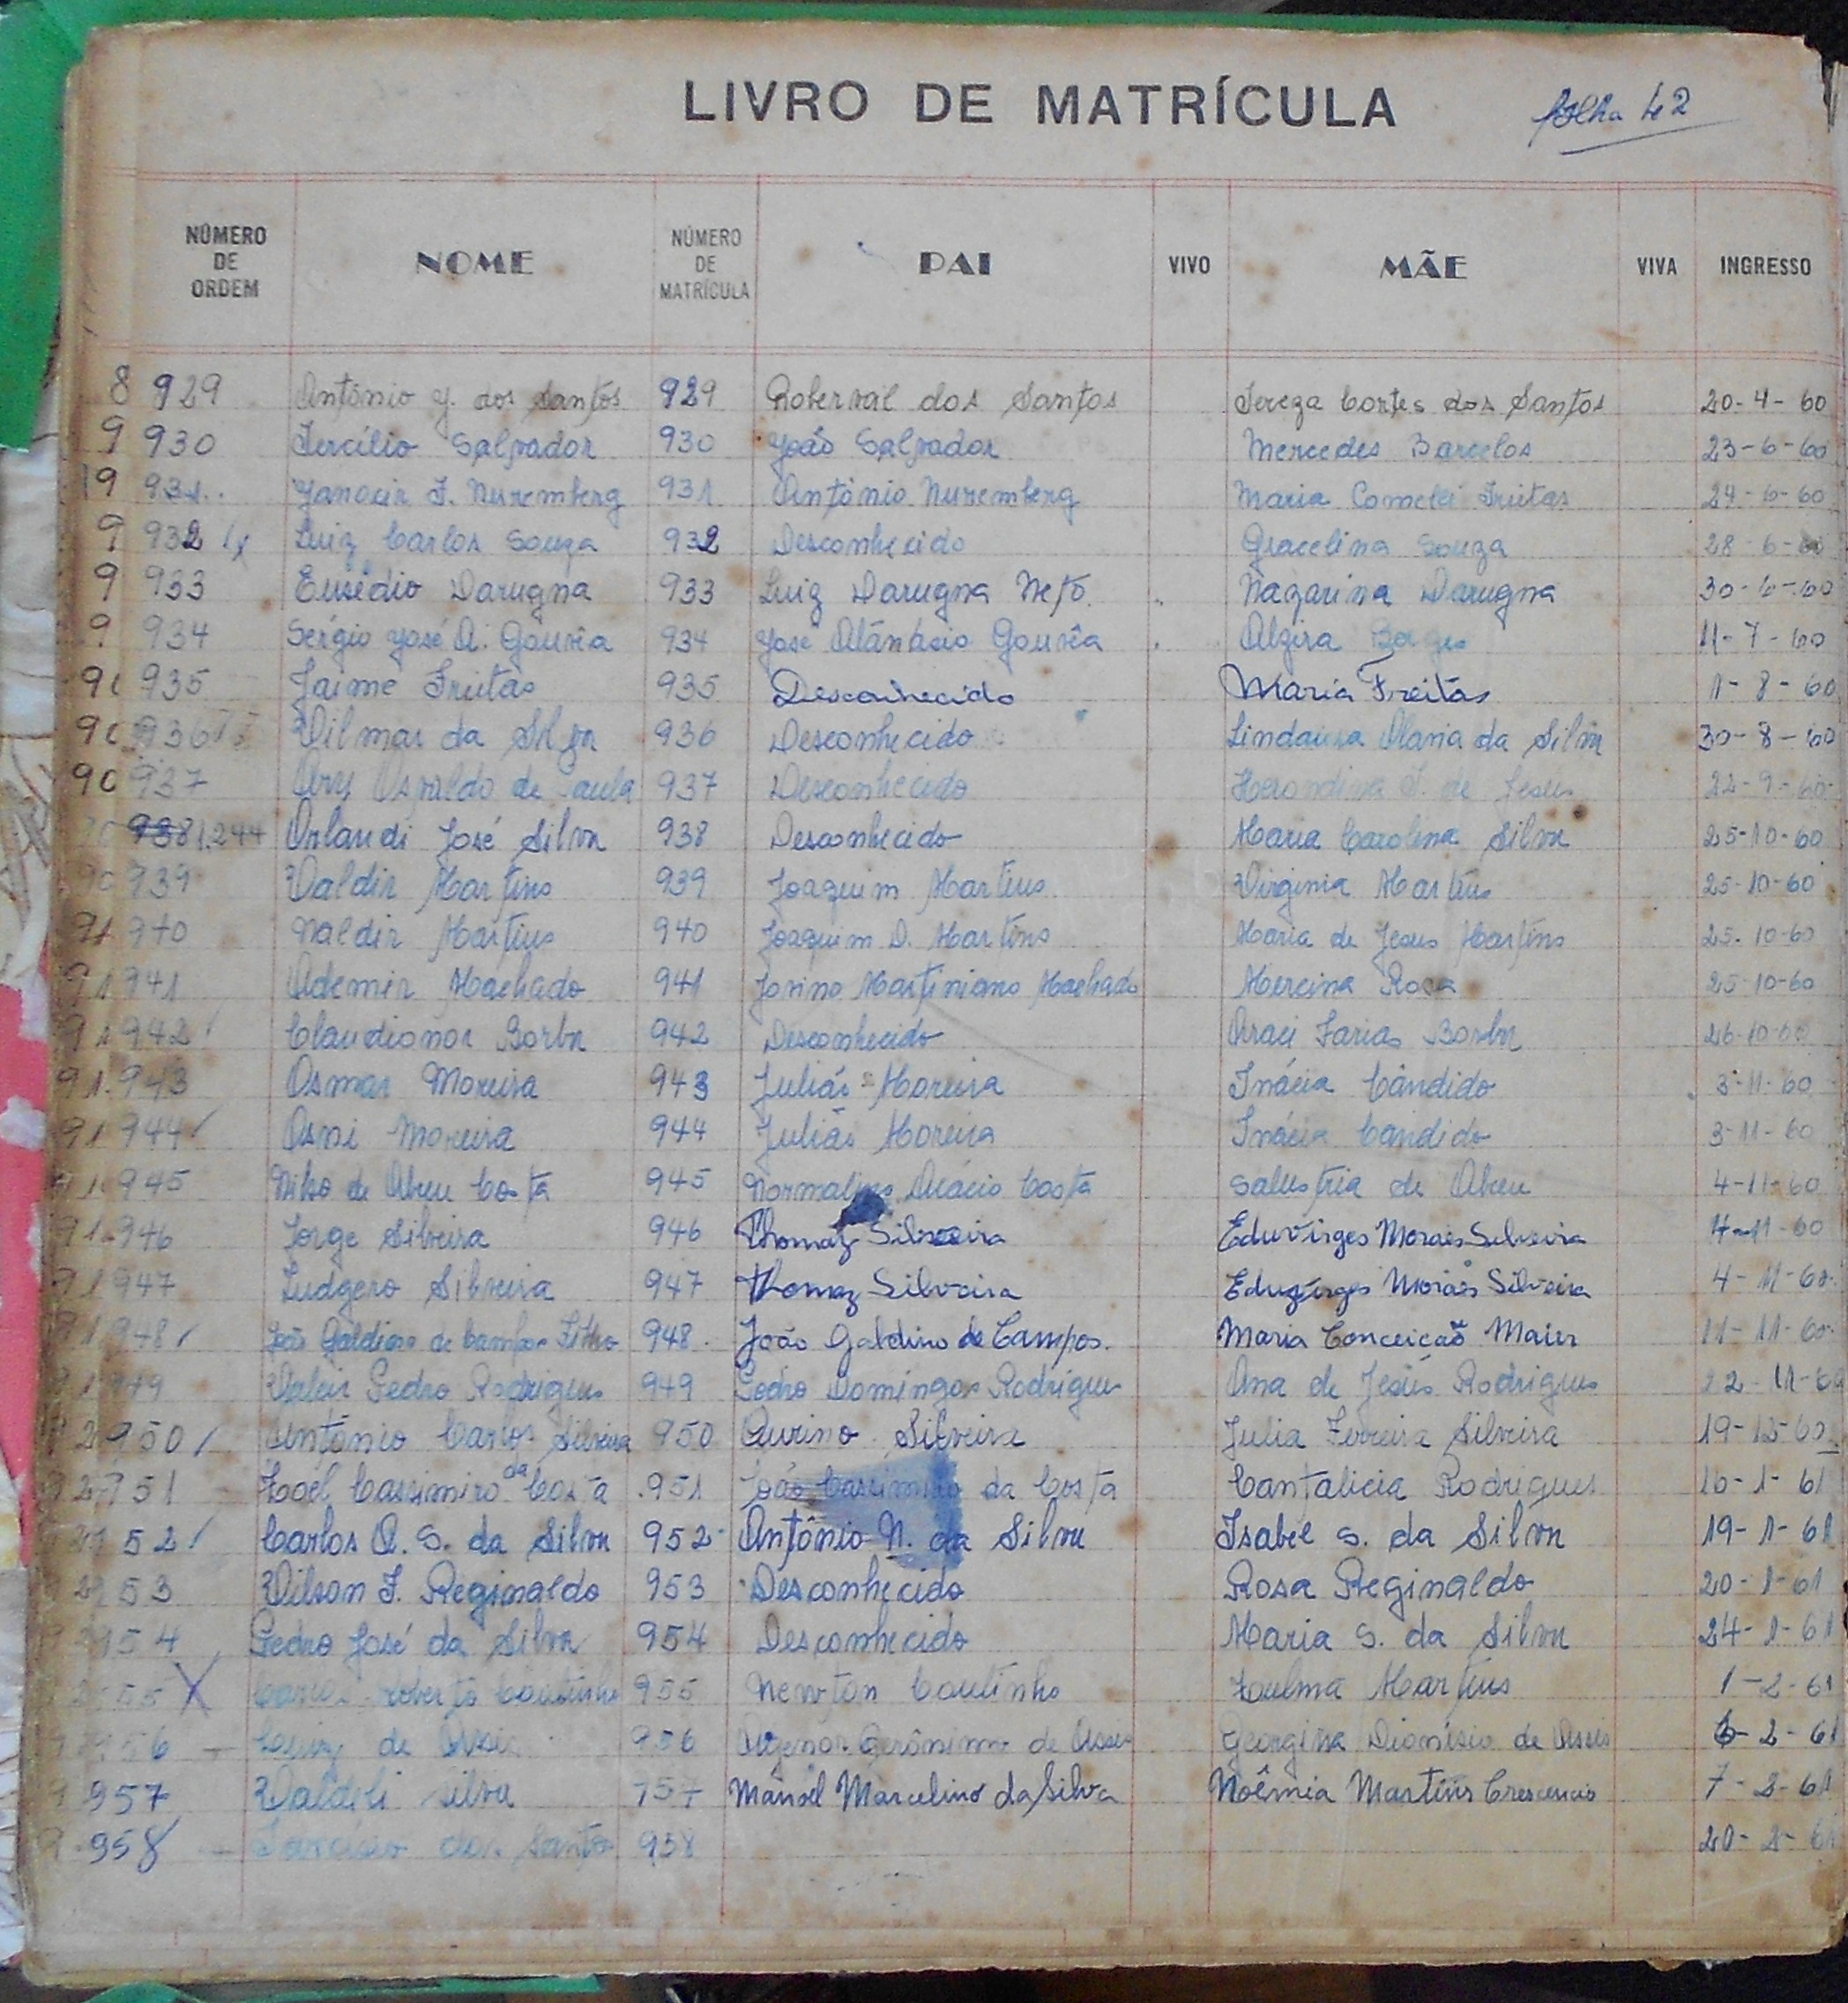 LIVRO DE MATRÍCULA folha 42
NÚMERO DE ORDEM NOME NÚMERO DE MATRÍCULA PAI VIVO MÃE VIVA INGRESSO
929 Antônio J. dos Santos 929 Roberval dos Santos Tereza Cortes dos Santos 20-4-60
930 Tercílio Salvador 930 João Salvador Mercedes Barcelos 23-6-60
931 Janocir F. Nuremberg 931 Antônio Nuremberg Maria Freitas 24-6-60
932 Luiz Carlos Souza 932 Desconhecido Gracelina Souza 28-6-60
933 Eusédio Darugna 933 Luiz Darugna Neto Nazarina Darugna 30-6-60
934 Sérgio José A. Gouvêa 934 José Atânásio Gouvêa Alzira Borges 11-7-60
935 Jaime Freitas 935 Desconhecido Maria Freitas 1-8-60
936 Vilmar da Silva 936 Desconhecido Lindaura Maria da Silva 30-8-60
937 Ary Osvaldo de Paula 937 Desconhecido de Jesus 22-9-60
938 1.244 Orlandi José Silva 938 Desconhecido Maria Carolina Silva 25-10-60
939 Valdir Martins 939 Joaquim Martins Virginia Martins 25-10-60
940 Naldir Martins 940 Joaquim D. Martins Maria de Jesus Martins 25-10-60
941 Ademir Machado 941 Jovino Martiniano Machado Mercina Rosa 25-10-60
942 Claudionor Borba 942 Desconhecido Araci Farias Borba 26-10-60
943 Osmar Moreira 943 Julião Moreira Inácia Cândido 3-11-60
944 Osni Moreira 944 Julião Moreira Inácia Candido 3-11-60
945 Nilso de Abreu Costa 945 Normalino Acácio Costa Salustria de Abreu 4-11-60
946 Jorge Silveira 946 Thomaz Silveira Eduvirges Morais Silveira 4-11-60
947 Ludgero Silveira 947 Thomaz Silveira Eduvirges Morais Silveira 4-11-60
948 João Galdino de Campos Filho 948 João Galdino de Campos. Maria Conceicão Maier 11-11-60
949 Valcir Pedro Rodrigues 949 Pedro Domingos Rodrigues Ana de Jesus Rodrigues 22-11-60
950 Antônio Carlos Silveira 950 Aurino Silveira Julia Ferreira Silveira 19-12-60
951 Zoél Cassimiro da Costa 951 João Cassimiro da Costa Cantalicia Rodrigues 16-1-61
952 Carlos A. S. da Silva 952 Antônio N. da Silva Isabel S. da Silva 19-1-61
953 Vilson F. Reginaldo 953 Desconhecido Rosa Reginaldo 20-1-61
954 Pedro José da Silva 954 Desconhecido Maria S. da Silva 24-1-61
955 X Carlos Roberto Coutinho 955 Newton Coutinho Zoulma Martins 1-2-61
956 Luiz de Assis 956 Agenor Gerônimo de Assis Georgina Dionísio de Assis 6-2-61
957 Valdeli Silva 957 Manoel Marcelino da Silva Noêmia Martins Crescencio 7-2-61
958 Tarcisio dos Santos 958 20-2-61